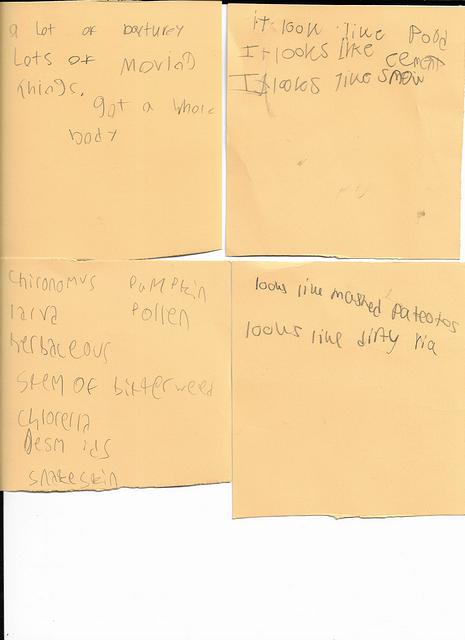 a lot of barturey
Lots of moving
things.
got a whole
body
it look like Food
It looks like cement
It looks like snow
chironomus pumpkin
larva pollen
herbaceous
stem of bitterweed
chlorella
Desm ids
snakeskin
looks like mashed pateotos
looks like dirty ria